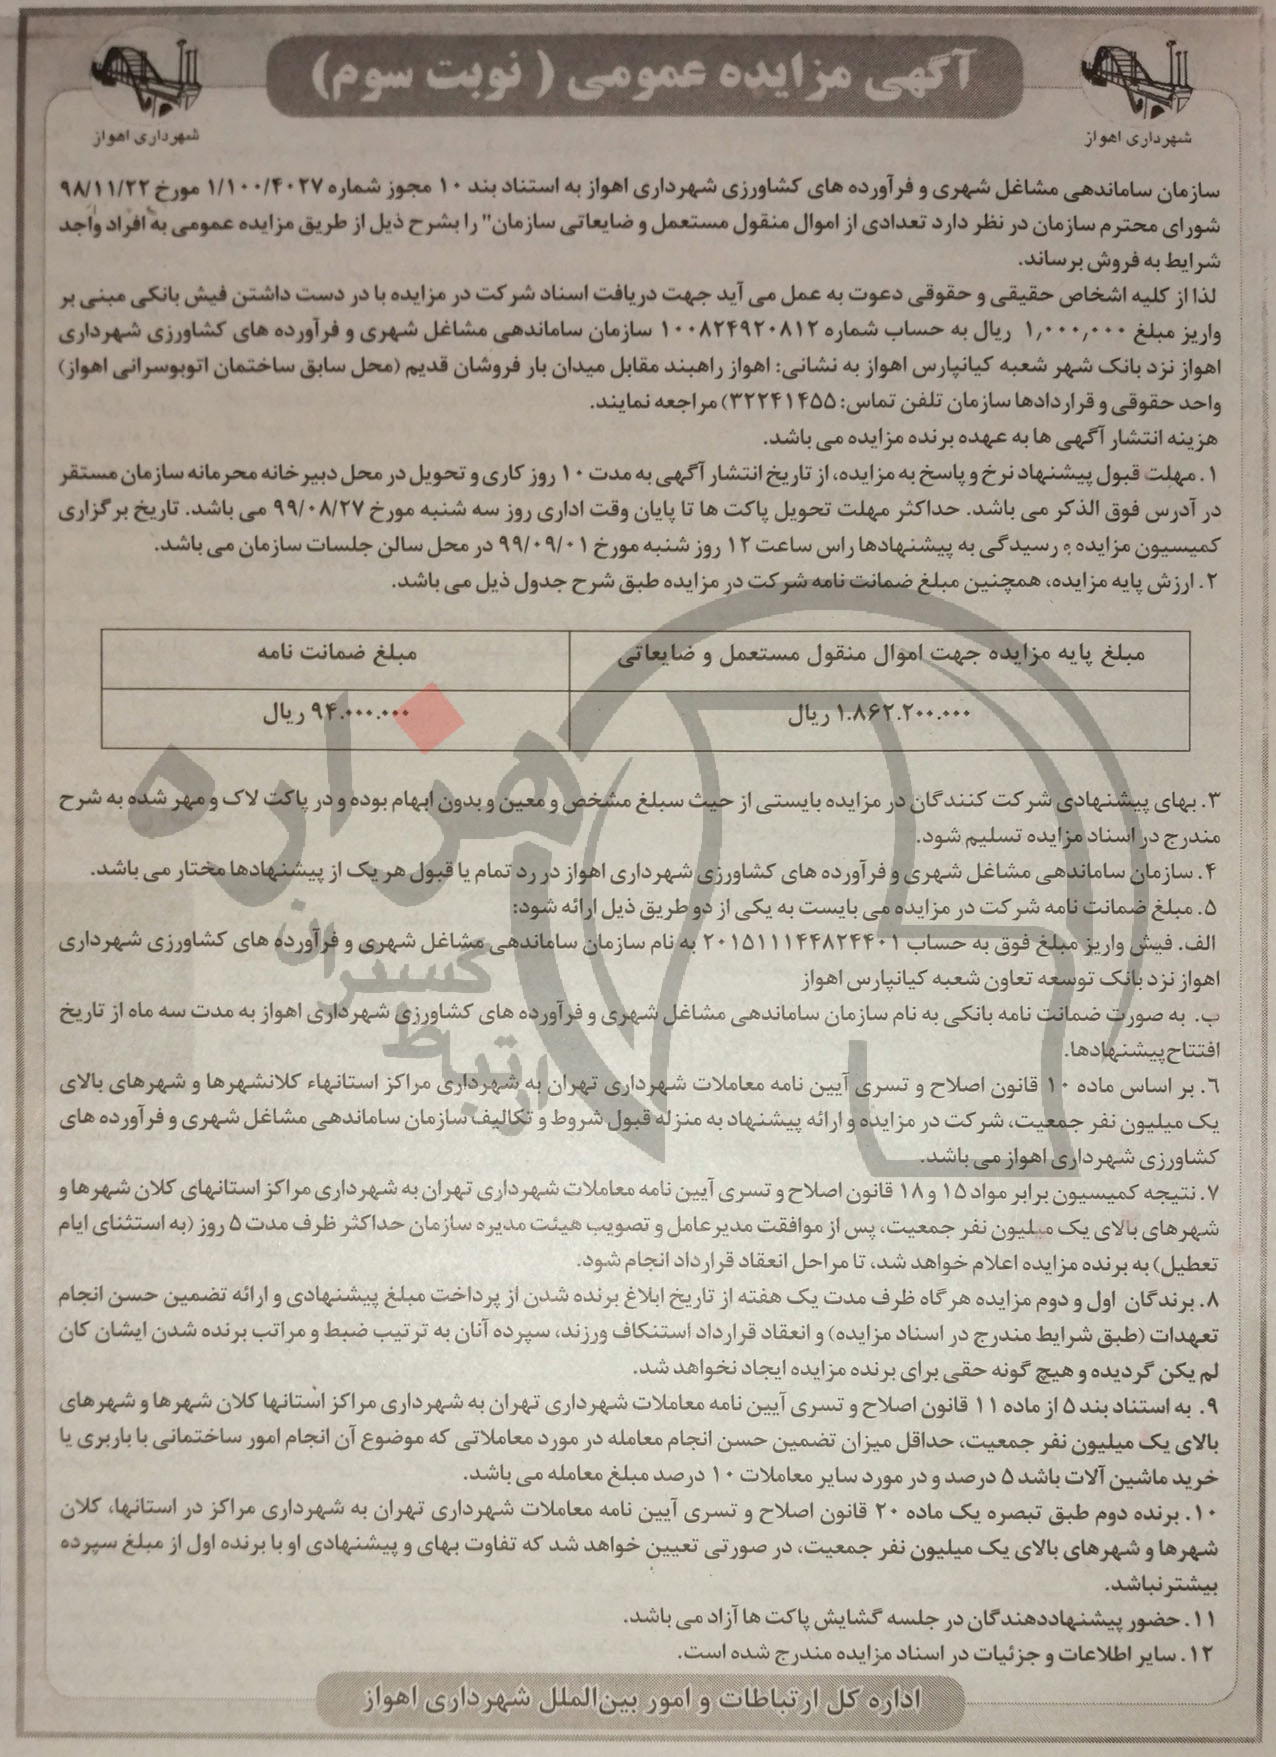 آگهی مزایده عمومی ( نوبت سوم)
شهرداری اهواز
شهرداری اهواز
سازمان ساماندهی مشاغل شهری و فرآورده های کشاورزی شهرداری اهواز به استناد بند ۱۰ مجوز شماره ۱/۱۰۰/۴۰۲۷ مورخ ۹۸/۱۱/۲۲
شورای محترم سازمان در نظر دارد تعدادی از اموال منقول مستعمل و ضایعاتی سازمان" را بشرح ذیل از طریق مزایده عمومی به افراد واجد
شرایط به فروش برساند.
لذا از کلیه اشخاص حقیقی و حقوقی دعوت به عمل می آید جهت دریافت اسناد شرکت در مزایده با در دست داشتن فیش بانکی مبنی بر
واریز مبلغ ۱,۰۰۰,۰۰۰ ریال به حساب شماره ۱۰۰۸۲۴۹۲۰۸۱۲ سازمان ساماندهی مشاغل شهری و فرآورده های کشاورزی شهرداری
اهواز نزد بانک شهر شعبه کیانپارس اهواز به نشانی: اهواز راهبند مقابل میدان بار فروشان قدیم (محل سابق ساختمان اتوبوسرانی اهواز)
واحد حقوقی و قراردادها سازمان تلفن تماس: ۳۲۲۴۱۴۵۵) مراجعه نمایند.
هزینه انتشار آگهی ها به عهده برنده مزایده می باشد.
۱. مهلت قبول پیشنهاد نرخ و پاسخ به مزایده، از تاریخ انتشار آگهی به مدت ۱۰ روز کاری و تحویل در محل دبیرخانه محرمانه سازمان مستقر
در آدرس فوق الذکر می باشد. حداکثر مهلت تحویل پاکت ها تا پایان وقت اداری روز سه شنبه مورخ ۹۹/۰۸/۲۷ می باشد. تاریخ برگزاری
کمیسیون مزایده و رسیدگی به پیشنهادها راس ساعت ۱۲ روز شنبه مورخ ۹۹/۰۹/۰۱ در محل سالن جلسات سازمان می باشد.
۲. ارزش پایه مزایده، همچنین مبلغ ضمانت نامه شرکت در مزایده طبق شرح جدول ذیل می باشد.
مبلغ پایه مزایده جهت اموال منقول مستعمل و ضایعاتی
مبلغ ضمانت نامه
۱.۸۶۲.۲۰۰.۰۰۰ ریال
۹۴.۰۰۰.۰۰۰ ریال
۳. بهای پیشنهادی شرکت کنندگان در مزایده بایستی از حیث سبلغ مشخص و معین و بدون ابهام بوده و در پاکت لاک و مهر شده به شرح
مندرج در اسناد مزایده تسلیم شود.
۴. سازمان ساماندهی مشاغل شهری و فرآورده های کشاورزی شهرداری اهواز در رد تمام یا قبول هر یک از پیشنهادها مختار می باشد.
۵. مبلغ ضمانت نامه شرکت در مزایده می بایست به یکی از دو طریق ذیل ارائه شود:
الف. فیش واریز مبلغ فوق به حساب ۲۰۱۵۱۱۱۴۴۸۲۴۴۰۱ به نام سازمان ساماندهی مشاغل شهری و فرآورده های کشاورزی شهرداری
اهواز نزد بانک توسعه تعاون شعبه کیانپارس اهواز
ب. به صورت ضمانت نامه بانکی به نام سازمان ساماندهی مشاغل شهری و فرآورده های کشاورزی شهرداری اهواز به مدت سه ماه از تاریخ
افتتاح پیشنهادها.
۶. بر اساس ماده ۱۰ قانون اصلاح و تسری آیین نامه معاملات شهرداری تهران به شهرداری مراکز استانهاء کلانشهرها و شهرهای بالای
یک میلیون نفر جمعیت، شرکت در مزایده و ارائه پیشنهاد به منزله قبول شروط و تکالیف سازمان ساماندهی مشاغل شهری و فرآورده های
کشاورزی شهرداری اهواز می باشد.
۷. نتیجه کمیسیون برابر مواد ۱۵ و ۱۸ قانون اصلاح و تسری آیین نامه معاملات شهرداری تهران به شهرداری مراکز استانهای کلان شهرها و
شهرهای بالای یک میلیون نفر جمعیت، پس از موافقت مدیرعامل و تصویب هیئت مدیره سازمان حداکثر ظرف مدت ۵ روز (به استثنای ایام
تعطیل) به برنده مزایده اعلام خواهد شد، تا مراحل انعقاد قرارداد انجام شود.
۸. برندگان اول و دوم مزایده هر گاه ظرف مدت یک هفته از تاریخ ابلاغ برنده شدن از پرداخت مبلغ پیشنهادی و ارائه تضمین حسن انجام
تعهدات (طبق شرایط مندرج در اسناد مزایده) و انعقاد قرارداد استنکاف ورزند، سپرده آنان به ترتیب ضبط و مراتب برنده شدن ایشان کان
لم یکن گردیده و هیچ گونه حقی برای برنده مزایده ایجاد نخواهد شد.
۹. به استناد بند ۵ از ماده ۱۱ قانون اصلاح و تسری آیین نامه معاملات شهرداری تهران به شهرداری مراکز استانها کلان شهرها و شهرهای
بالای یک میلیون نفر جمعیت، حداقل میزان تضمین حسن انجام معامله در مورد معاملاتی که موضوع آن انجام امور ساختمانی با باربری یا
خرید ماشین آلات باشد ۵ درصد و در مورد سایر معاملات ۱۰ درصد مبلغ معامله می باشد.
۱۰. برنده دوم طبق تبصره یک ماده ۲۰ قانون اصلاح و تسری آیین نامه معاملات شهرداری تهران به شهرداری مراکز در استانها، کلان
شهرها و شهرهای بالای یک میلیون نفر جمعیت، در صورتی تعیین خواهد شد که تفاوت بهای و پیشنهادی او با برنده اول از مبلغ سپرده
بیشتر نباشد.
۱۱. حضور پیشنهاددهندگان در جلسه گشایش پاکت ها آزاد می باشد.
۱۲. سایر اطلاعات و جزئیات در اسناد مزایده مندرج شده است.
اداره کل ارتباطات و امور بین‌الملل شهرداری اهواز
هزاره
گستران
ارتباط